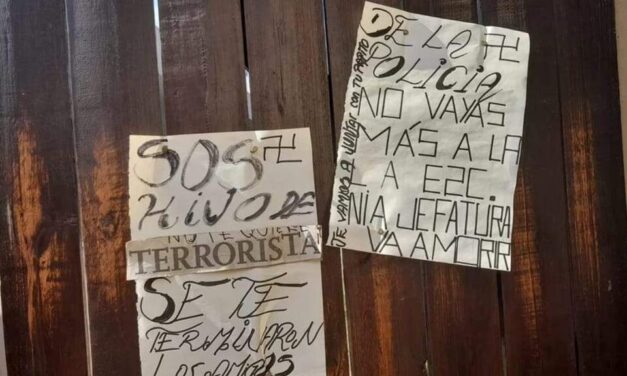 SOS
HIJO DE
NO TE QUIERE
TERRORISTA
SE TE
TERMINARON
LOS AMIGOS
DE LA
POLICIA
NO VAYAS
MÁS A LA
A E2C.
NI A JEFATURA
VA A MORIR
TE VAMOS A JUNTAR CON TU PAPITO